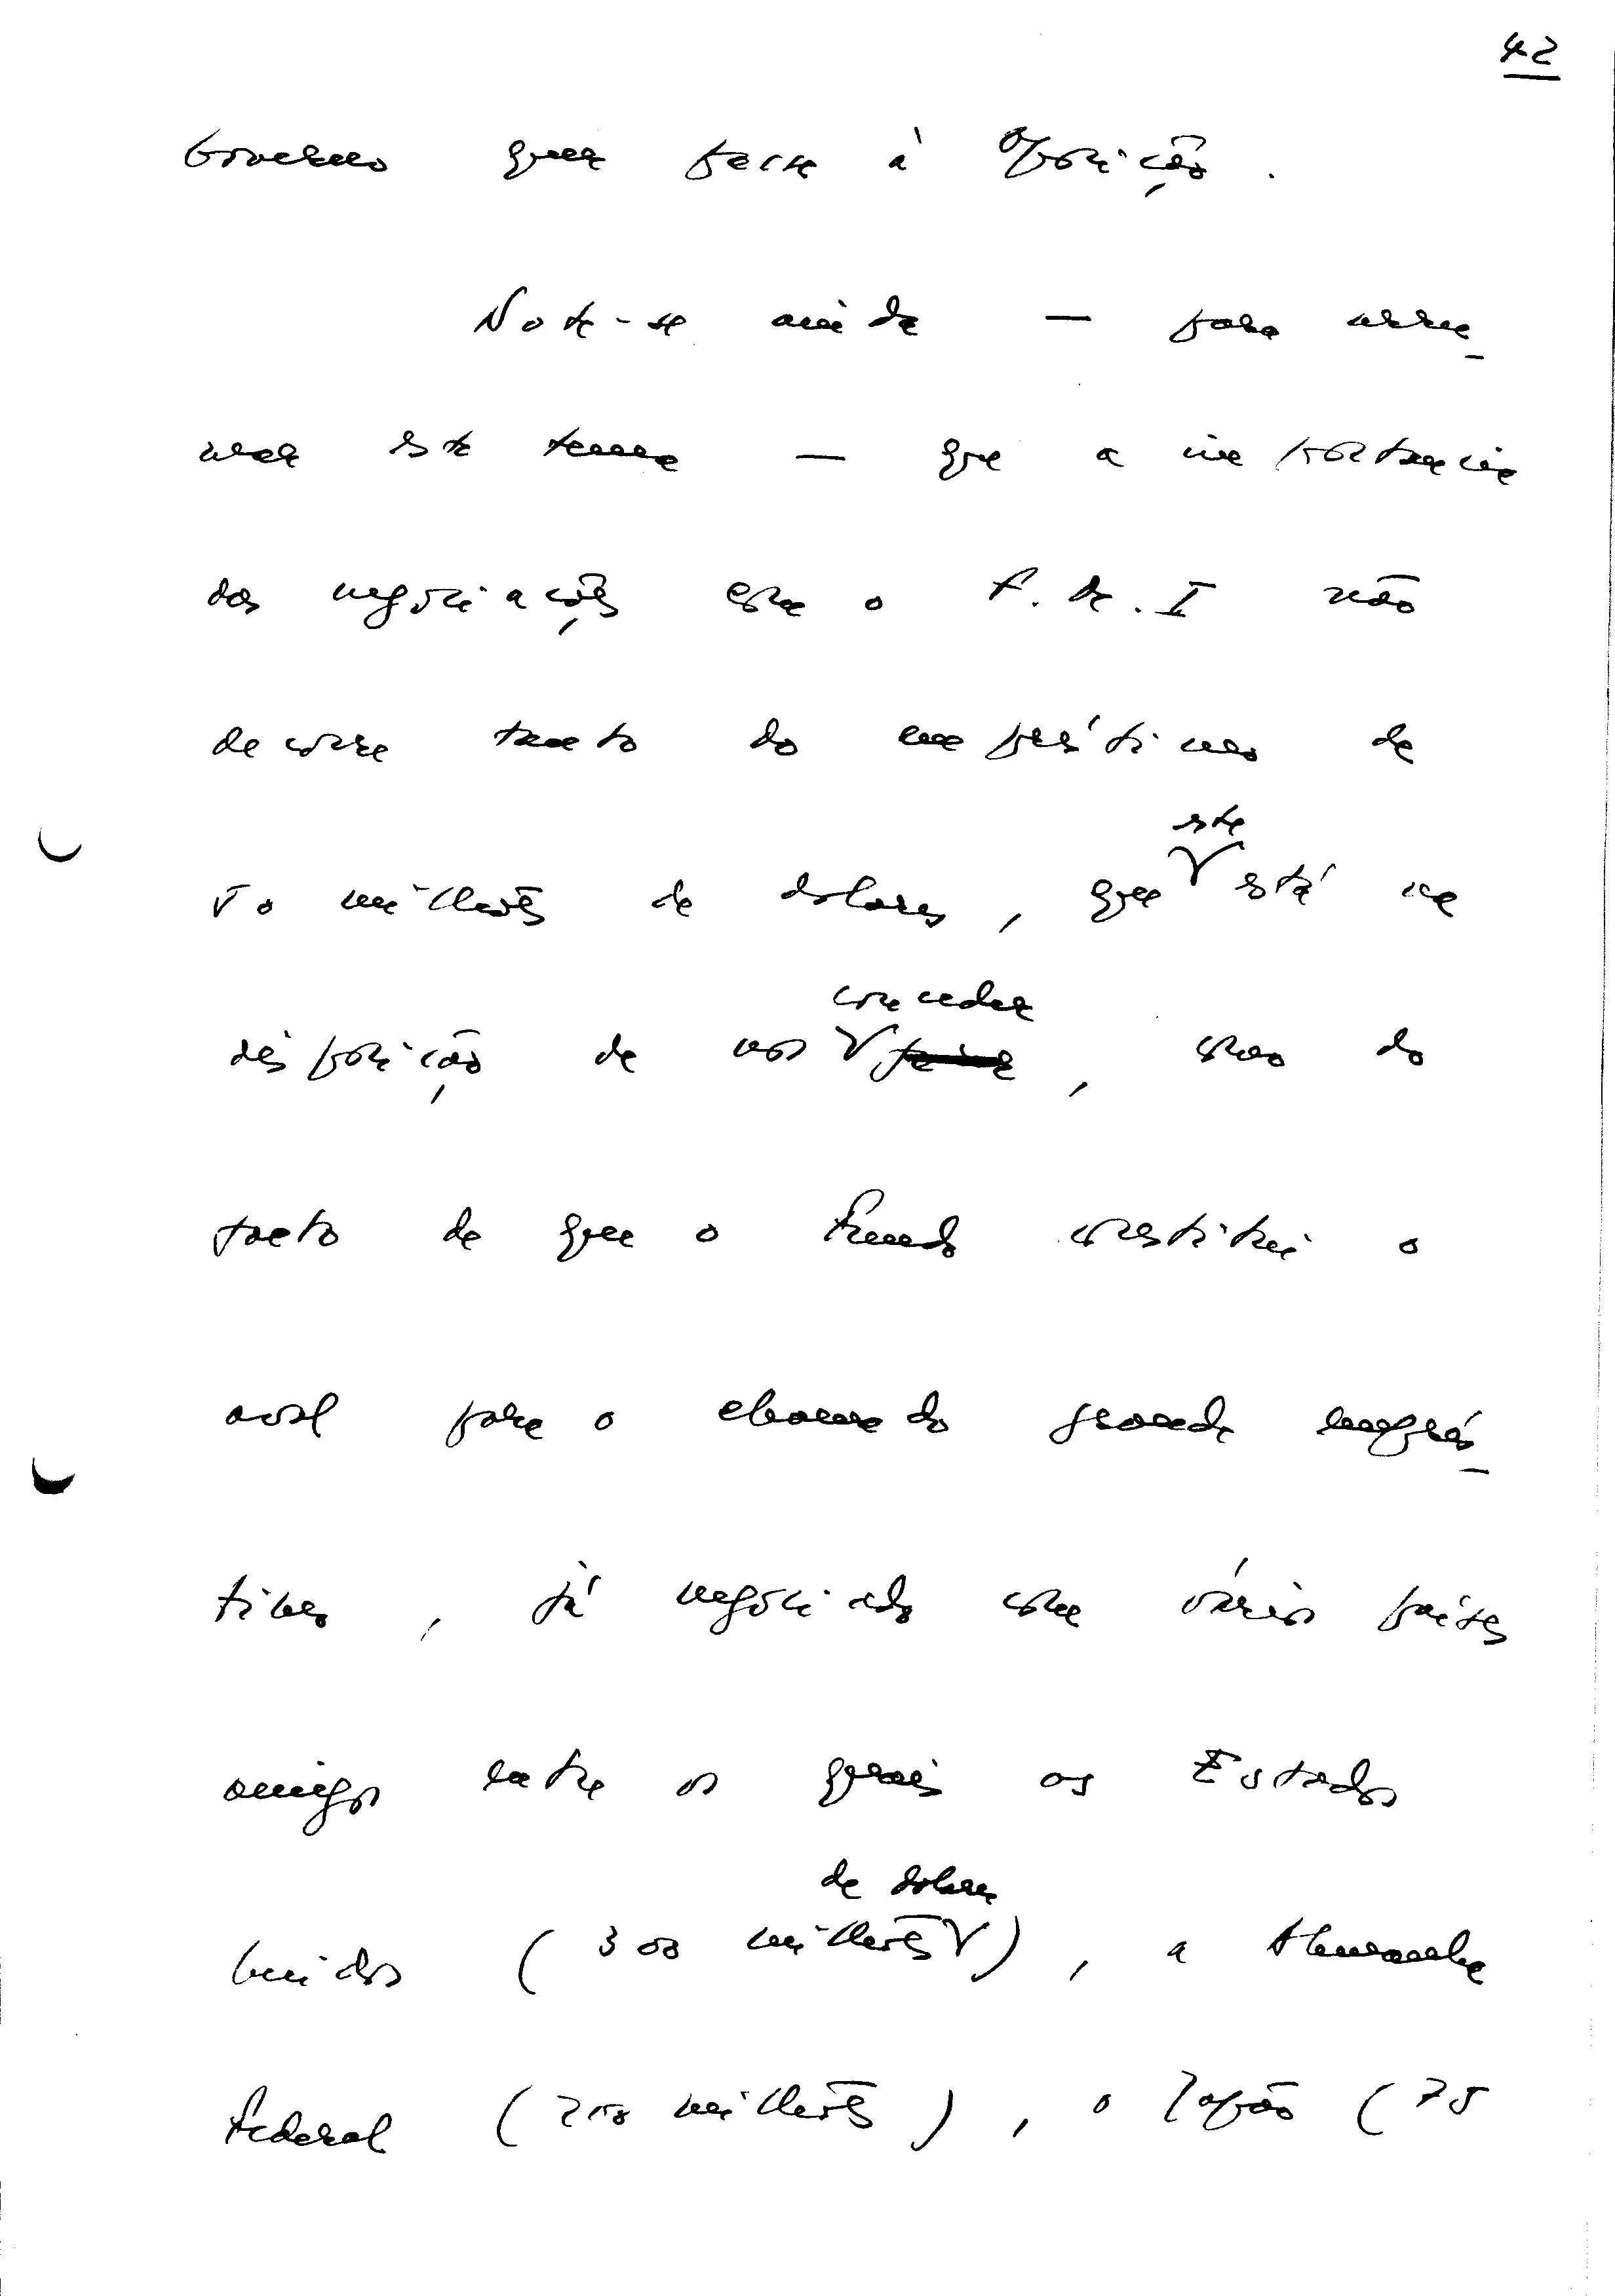 42
Governo quer passe à oposição.
Note-se ainda — para arru-
mar este tema — que a importancia
das negociações com o F.M.I não
decorre tanto do empréstimo de
50 milhões de dolares, que este está na
disposição de nos conceder, mas do
facto de que o Fundo constitui o
aval para o chamado grande emprés-
timo, já negociado com vários países
amigos entre os quais os Estados
Unidos (300 milhões de dolares), a Alemanha
Federal (200 milhões), o Japão (75